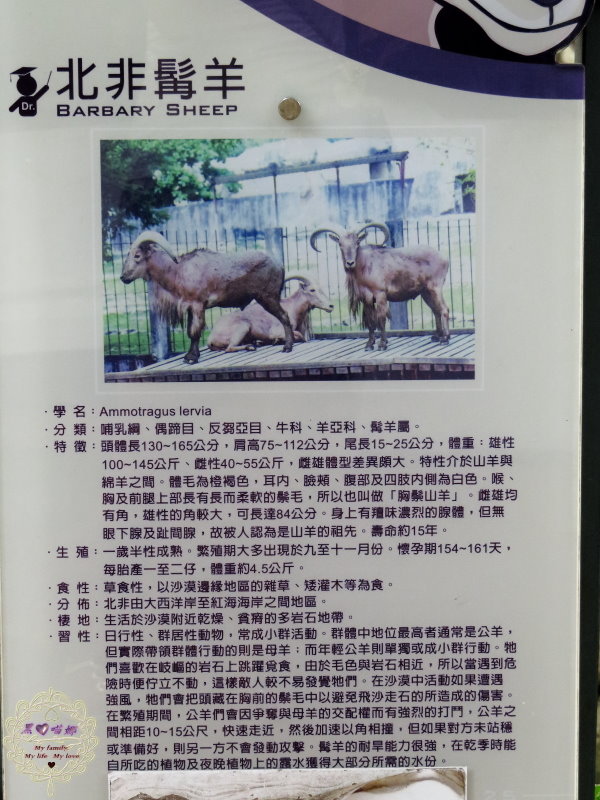 北非髯羊
Dr.
BARBARY SHEEP
·學 名：Ammotragus lervia
·分 類：哺乳綱、偶蹄目、反芻亞目、牛科、羊亞科、髯羊屬。
·特 徵：頭體長130~165公分，肩高75~112公分，尾長15~25公分，體重：雄性
100~145公斤、雌性40~55公斤，雌雄體型差異頗大。特性介於山羊與
綿羊之間。體毛為橙褐色，耳內、臉頰、腹部及四肢內側為白色。喉、
胸及前腿上部長有長而柔軟的鬃毛，所以也叫做「胸鬃山羊」。雌雄均
有角，雄性的角較大，可長達84公分。身上有羶味濃烈的腺體，但無
眼下腺及趾間腺，故被人認為是山羊的祖先。壽命約15年。
·生 殖：一歲半性成熟。繁殖期大多出現於九至十一月份。懷孕期154~161天，
每胎產一至二仔，體重約4.5公斤。
·食 性：草食性，以沙漠邊緣地區的雜草、矮灌木等為食。
·分 佈：北非由大西洋岸至紅海海岸之間地區。
·棲 地：生活於沙漠附近乾燥、貧瘠的多岩石地帶。
·習 性：日行性、群居性動物，常成小群活動。群體中地位最高者通常是公羊，
但實際帶領群體行動的則是母羊；而年輕公羊則單獨或成小群行動。牠
們喜歡在岐嶇的岩石上跳躍覓食，由於毛色與岩石相近，所以當遇到危
險時便佇立不動，這樣敵人較不易發覺牠們。在沙漠中活動如果遭遇
強風，牠們會把頭藏在胸前的鬃毛中以避免飛沙走石的所造成的傷害。
在繁殖期間，公羊們會因爭奪與母羊的交配權而有強烈的打鬥，公羊之
間相距10~15公尺，快速走近，然後加速以角相撞，但如果對方未站穩
或準備好，則另一方不會發動攻擊。髯羊的耐旱能力很強，在乾季時能
自所吃的植物及夜晚植物上的露水獲得大部分所需的水份。
My family
My life My love